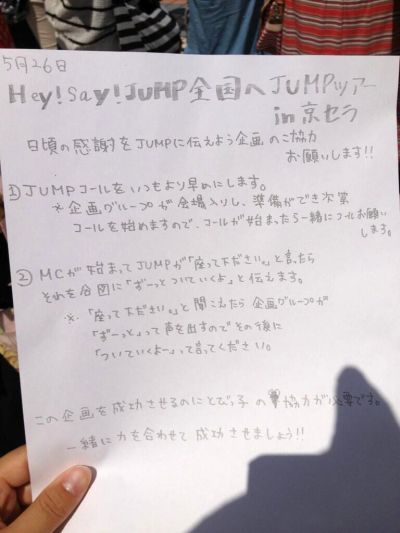 5月26日
Hey!Say!JUMP全国へJUMPツアー
in京セラ
日頃の感謝をJUMPに伝えよう企画のご協力
お願いします!!
①JUMPコールをいつもより早めにします。
※企画グループが会場入りし、準備ができ次第
コールを始めますので、コールが始まったら一緒にコールお願い
します。
②MCが始まってJUMPが「座って下ださい。」と言ったら
それを合図に「ずーっとついていくよ」と伝えます。
※.「座って下ださい。」と聞こえたら企画グループが
「ずーっと」って声を出すのでその後に
「ついていくよー」って言ってください。
この企画を成功させるのにとびっ子の協力が必要です。
一緒に力を合わせて成功させましょう!!